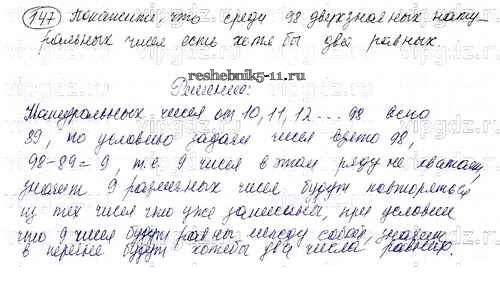 147 Покажите, что среди 98 двухзначных нату-
ральных чисел есть хотя бы два равных.
reshebnik5-11.ru
Решение:
Натуральных чисел от 10, 11, 12 ... 98 всего
89, по условию задачи чисел всего 98,
98-89=9, т.е. 9 чисел в этом ряду не хватает,
значит 9 различных чисел будут повторяться
из тех чисел что уже записаны, при условии
что 9 чисел будут равны между собой, значит
в перечне будут хотябы два числа равных.